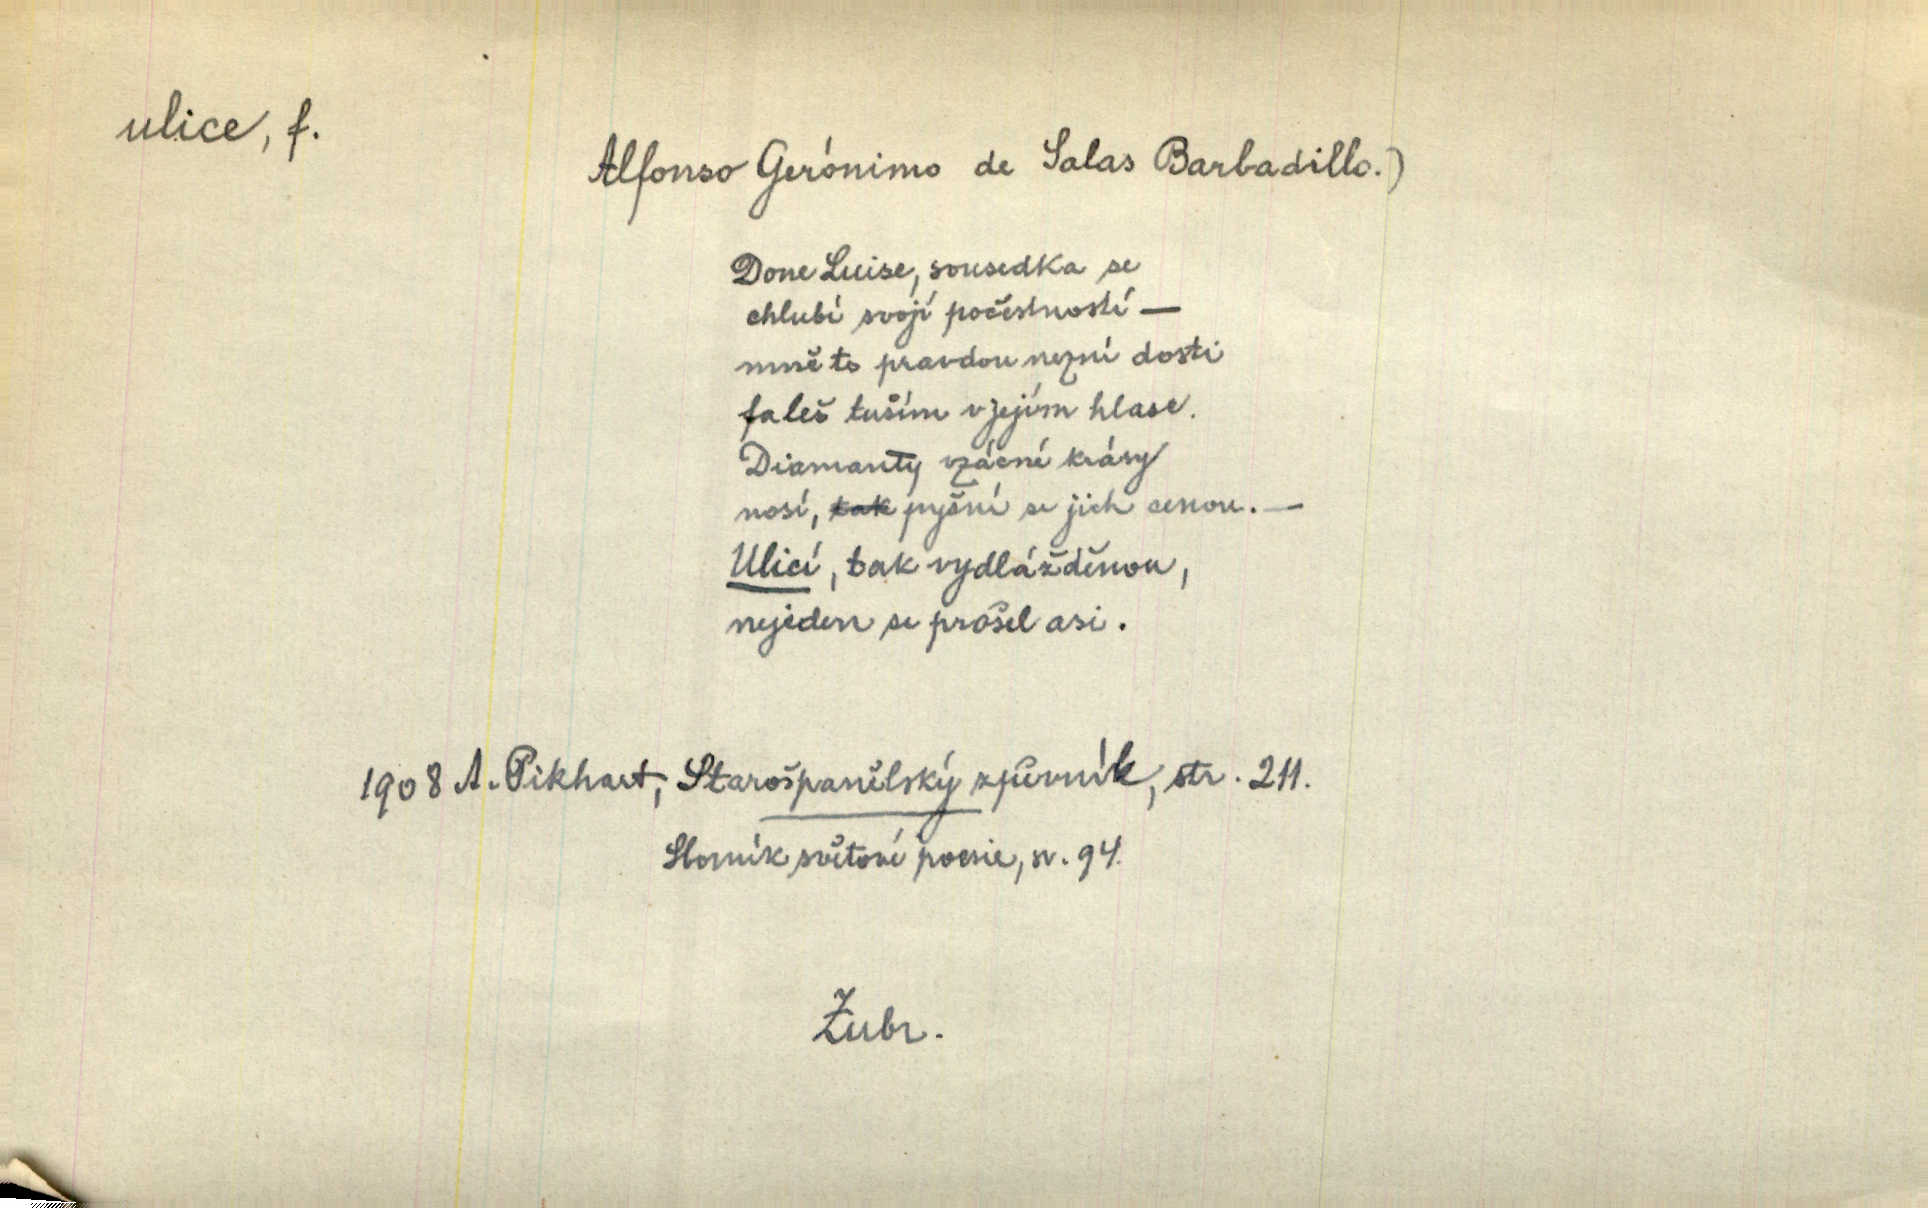 ulice, f.
Alfonso Gerónimo de Salas Barbadillo.)
Done Luise, sousedka se
chlubí svojí počestností —
mně to pravdou nezní dosti
faleš tuším v jejím hlase.
Diamanty vzácné krásy
nosí, tak pyšní se jich cenou. —
Ulicí, tak vydlážděnou,
nejeden se prošel asi.
1908 A. Pikhart, Starošpanělský zpěvník, str. 211.
Sborník světové poesie, sv. 94.
Žubr.